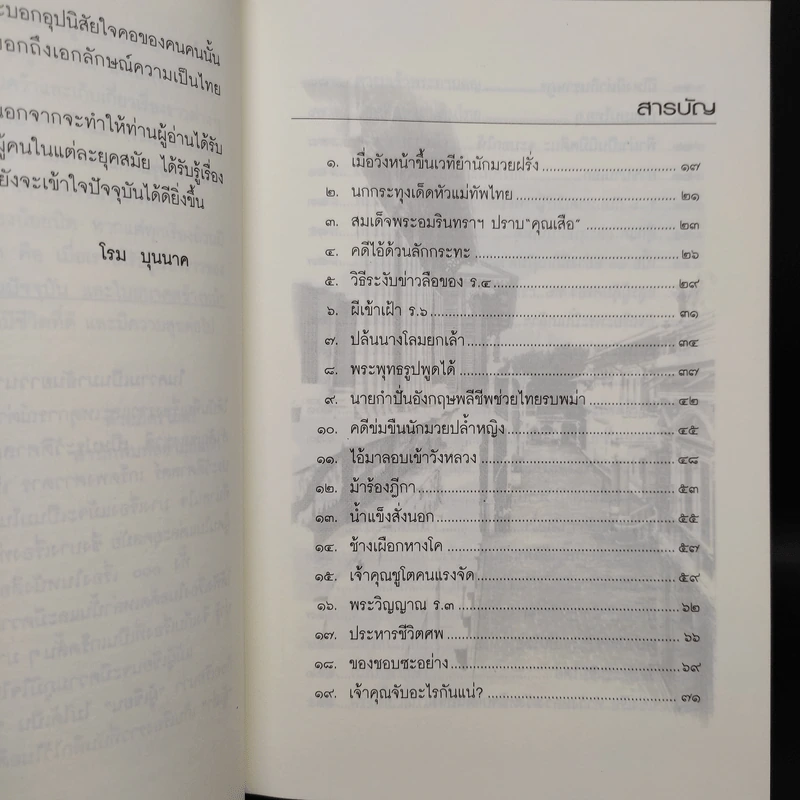 ะบอกอุปนิสัยใจคอของคนคนนั้น
บอกถึงเอกลักษณ์ความเป็นไทย
นอกจากจะทำให้ท่านผู้อ่านได้รับ
ผู้คนในแต่ละยุคสมัย ได้รับรู้เรื่อง
ยังจะเข้าใจปัจจุบันได้ดียิ่งขึ้น
โรม บุนนาค
สารบัญ
๑. เมื่อวังหน้าขึ้นเวทียำนักมวยฝรั่ง ๑๗
๒. นกกระทุงเด็ดหัวแม่ทัพไทย ๒๑
๓. สมเด็จพระอมรินทราฯ ปราบ“คุณเสือ” ๒๓
๔. คดีไอ้ด้วนลักกระทะ ๒๖
๕. วิธีระงับข่าวลือของ ร.๔ ๒๙
๖. ผีเข้าเฝ้า ร.๖ ๓๑
๗. ปล้นนางโลมยกเล้า ๓๔
๘. พระพุทธรูปพูดได้ ๓๗
๙. นายกำปั่นอังกฤษพลีชีพช่วยไทยรบพม่า ๔๒
๑๐. คดีข่มขืนนักมวยปล้ำหญิง ๔๕
๑๑. ไอ้มาลอบเข้าวังหลวง ๔๘
๑๒. ม้าร้องฎีกา ๕๓
๑๓. น้ำแข็งสั่งนอก ๕๕
๑๔. ช้างเผือกหางโค ๕๗
๑๕. เจ้าคุณชูโตคนแรงจัด ๕๙
๑๖. พระวิญญาณ ร.๓ ๖๒
๑๗. ประหารชีวิตศพ ๖๖
๑๘. ของชอบชะอย่าง ๖๙
๑๙. เจ้าคุณจับอะไรกันแน่? ๗๑